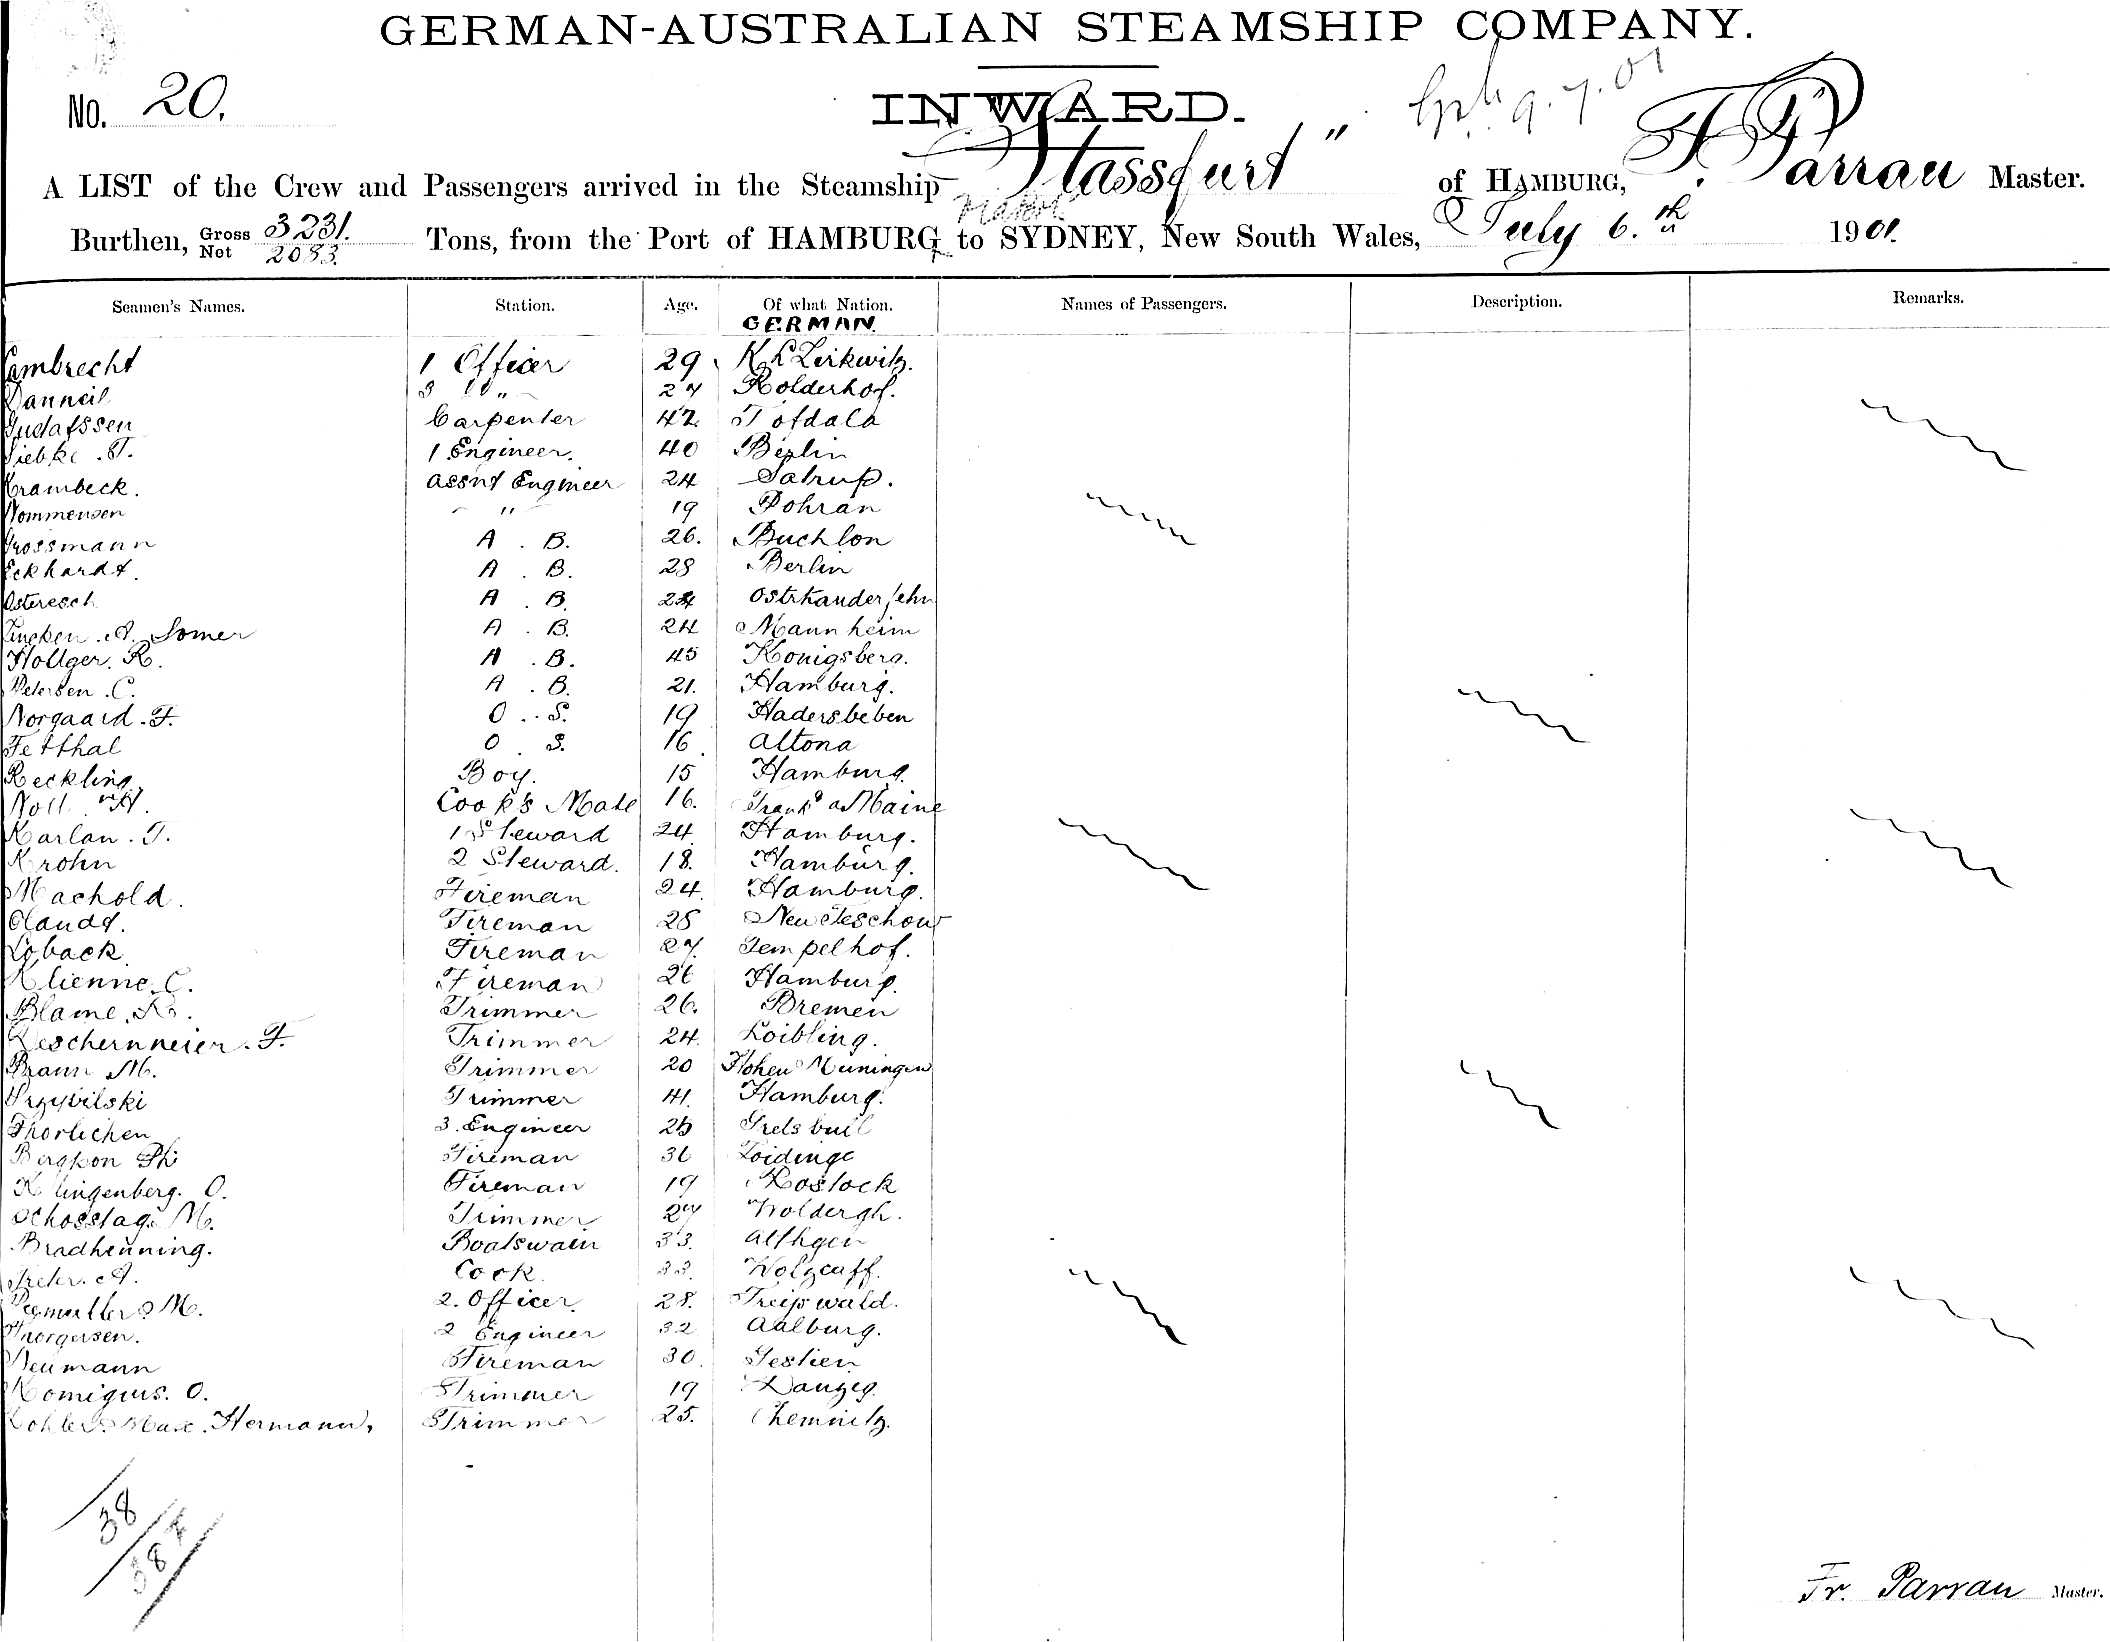 GERMAN-AUSTRALIAN STEAMSHIP COMPANY.
No. 20.
INWARD.
9.7.01
A LIST of the Crew and Passengers arrived in the Steamship "Stassfurt" of HAMBURG, F. Parrau Master.
Burthen, Gross 3231. Net 2033. Tons, from the Port of HAMBURG to SYDNEY, New South Wales, July 6.th 1901.
Seamen's Names. Station. Age. Of what Nation. Names of Passengers. Description. Remarks.
GERMAN.
Lambrecht 1 Officer 29 Kl Zirkwitz.
Danneil 3 " 27 Holderhof.
Gustafssen Carpenter 42 Tofdala
Siebke. T. 1 Engineer. 40 Berlin
Krambeck. Assnt Engineer 24 Satrup.
Nommensen " 19 Pohran
Grossmann A. B. 26. Buchlon
Eckhardt. A. B. 28 Berlin
Osteresch A. B. 24 Ostrhauderfehn
A. Somer A. B. 24 Mannheim
Hollger. R. A. B. 45 Konigsberg.
Petersen. C. A. B. 21. Hamburg.
Norgaard. F. O. S. 19 Hadersleben
Fetthal O. S. 16 Altona
Reckling Boy. 15 Hamburg.
Noll. H. Cook's Mate 16. Frank a Maine
Karlau. T. 1 Steward 24 Hamburg.
Krohn 2 Steward. 18. Hamburg.
Machold. Fireman 24. Hamburg.
Claudt. Fireman 28 Neu Teschow
Loback Fireman 27. Tempelhof.
Klienne. C. Fireman 26 Hamburg.
Blame. R. Trimmer 26. Bremen
Leschernneier. F. Trimmer 24. Loibling.
Braun M. Trimmer 20 Hohen Meiningen
Przybilski Trimmer 41. Hamburg.
Thorlichen 3. Engineer 25 Trelsbuil
Bergkon Ph Fireman 36 Zoidinge
Klingenberg. O. Fireman 19 Rostock
Schosstag. M. Trimmer 27 Woldergh.
Bradhenning. Boatswain 33. Althgen
A. Cook. 33. Wolgcuff.
M. 2. Officer. 28. Treipswald.
2 Engineer 32 Aalburg.
Neumann Fireman 30. Jestien
Romigius. O. Trimmer 19 Danzig.
Kohler Max. Hermann, Trimmer 25. Chemnitz.
38
38
Fr. Parrau Master.